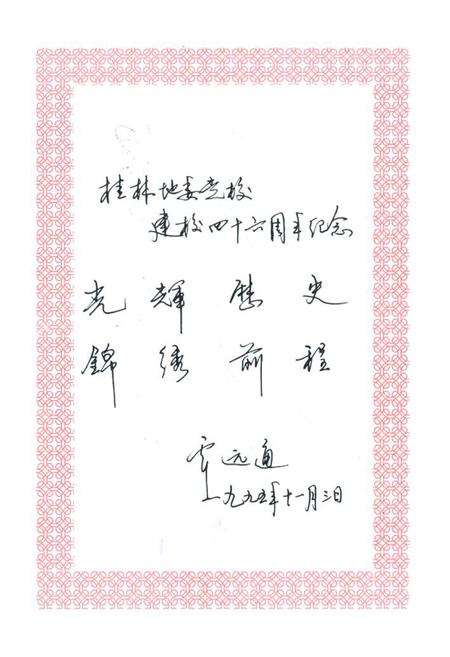 桂林地委党校
建校四十六周年纪念
光輝歷史
錦绣前程
覃远通
一九九五年十一月三日